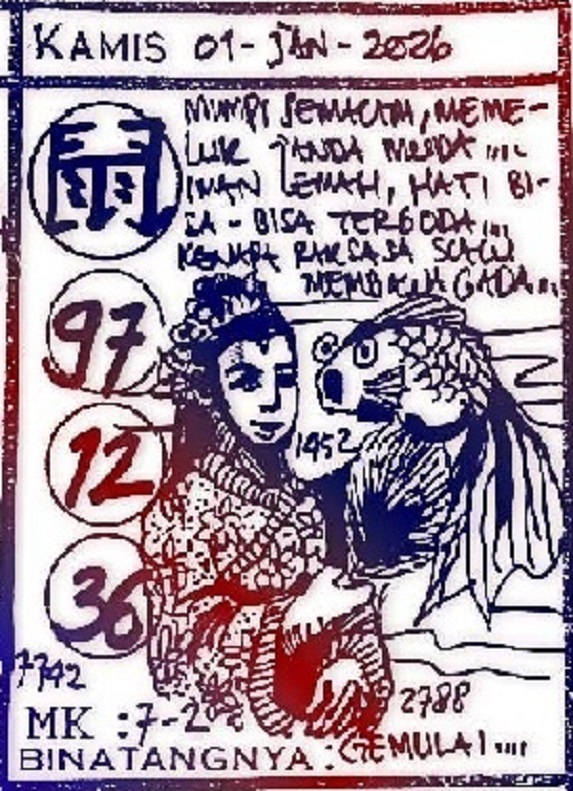 KAMIS 01-JAN-2026
MIMPI SEMALAM, MEME-
LUK JANDA MUDA....
IMAN LEMAH, HATI BI-
SA-BISA TERGODA...
KENAPA RAKSASA
MEMBAWA GADA...
97
12
1452
36
7742
2788
MK : 7-2
BINATANGNYA : GEMULAI....